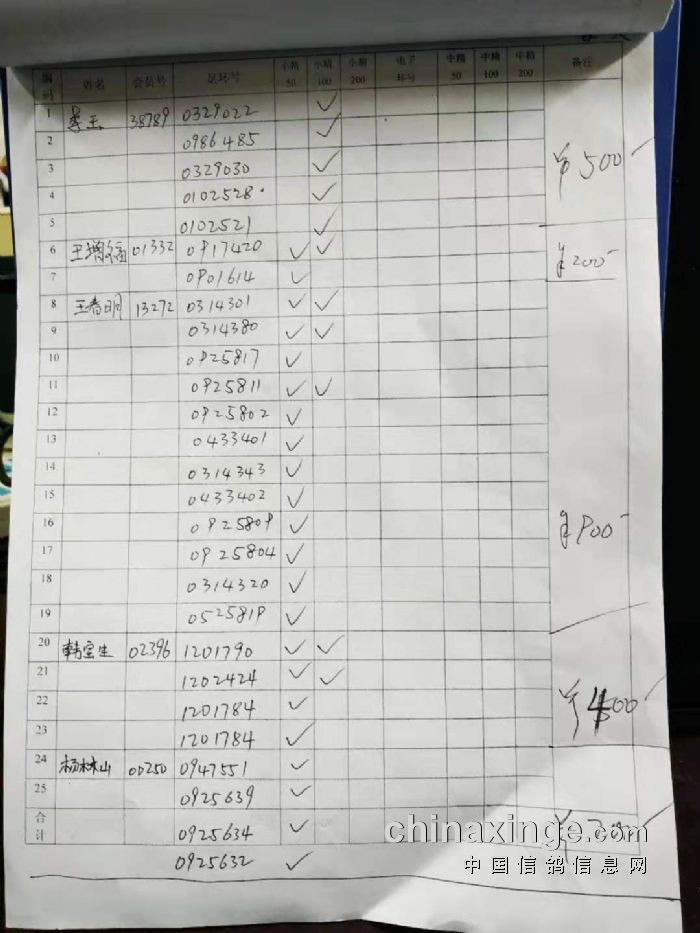 编码 姓名 会员号 足环号 小精50 小精100 小精200 电子环号 中精50 中精100 中精200 备注
1 38789 0329022 ✓
2 0986485 ✓
3 0329030 ✓ ¥500-
4 0102528 ✓
5 0102521 ✓
6 王增福 01332 0917420 ✓ ✓ ¥200-
7 0901614 ✓
8 王春明 13272 0314301 ✓ ✓
9 0314380 ✓ ✓
10 0925817 ✓
11 0925811 ✓ ✓
12 0925802 ✓
13 0433401 ✓
14 0314343 ✓
15 0433402 ✓
16 0925809 ✓ ¥900-
17 0925804 ✓
18 0314320 ✓
19 0525819 ✓
20 韩宝生 02396 1201790 ✓ ✓
21 1202424 ✓ ✓
22 1201784 ✓ ¥400-
23 1201784 ✓
24 杨林山 00250 0947551 ✓
25 0925639 ✓
合计 0925634 ✓
0925632 ✓
chinaxinge.com
中国信鸽信息网